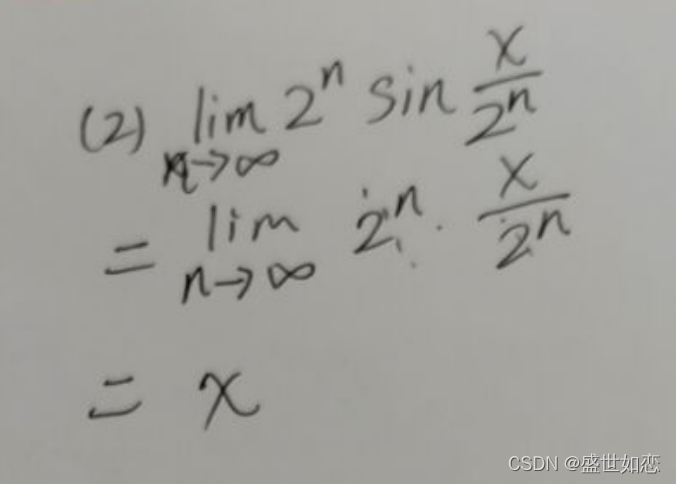 (2) lim n→∞ 2^n sin x/2^n
= lim n→∞ 2^n · x/2^n
= x
CSDN @盛世如恋